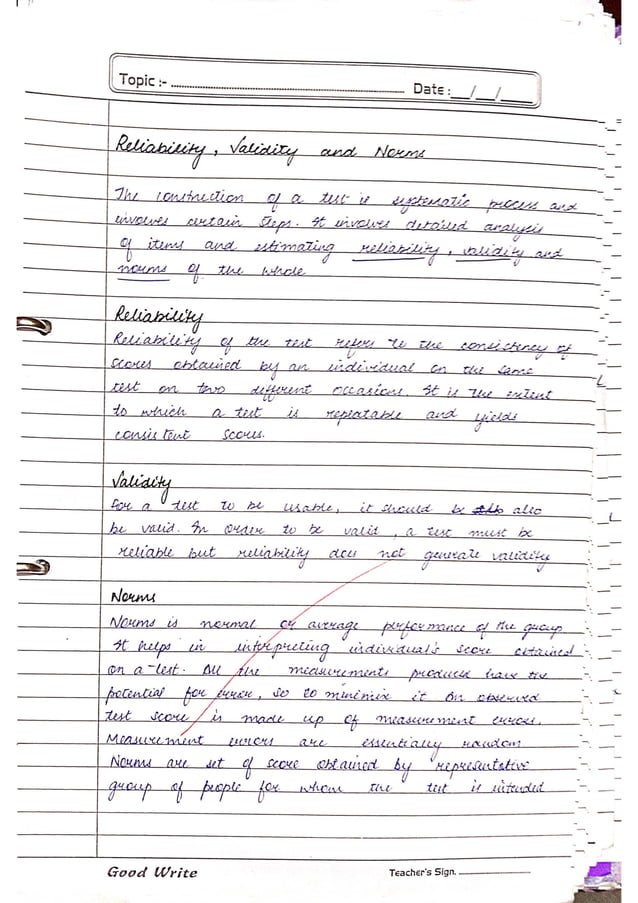 Topic :- Date : __/__/____
Reliability, Validity and Norms
The construction of a test is systematic process and
involves certain steps. It involves detailed analysis
of items and estimating reliability, validity and
norms of the whole
Reliability
Reliability of the test refers to the consistency of
scores obtained by an individual on the same
test on two different occasions. It is the extent
to which a test is repeatable and yields
consistent scores.
Validity
For a test to be usable, it should be also
be valid. In order to be valid, a test must be
reliable but reliability does not generate validity
Norms
Norms is normal or average performance of the group
It helps in interpreting individual's score obtained
on a test. All the measurements produced have the
potential for error, so to minimix it an observed
test score is made up of measurement errors.
Measurement errors are essentially random
Norms are set of score obtained by representative
group of people for whom the test is intended
Good Write Teacher's Sign.